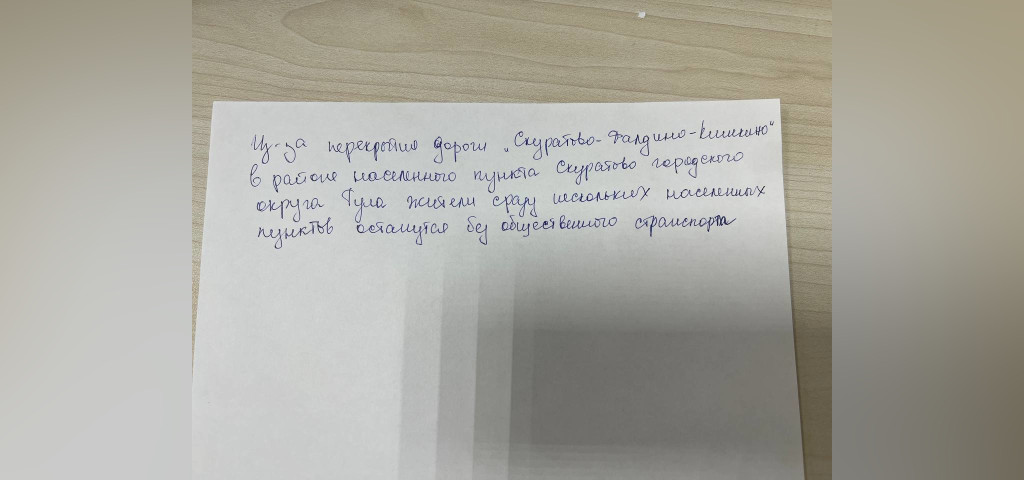 Из-за перекрытия дороги „Скуратово-Галдино-Клишино"
в районе населенного пункта Скуратово городского
округа Тула жители сразу нескольких населенных
пунктов останутся без общественного транспорта